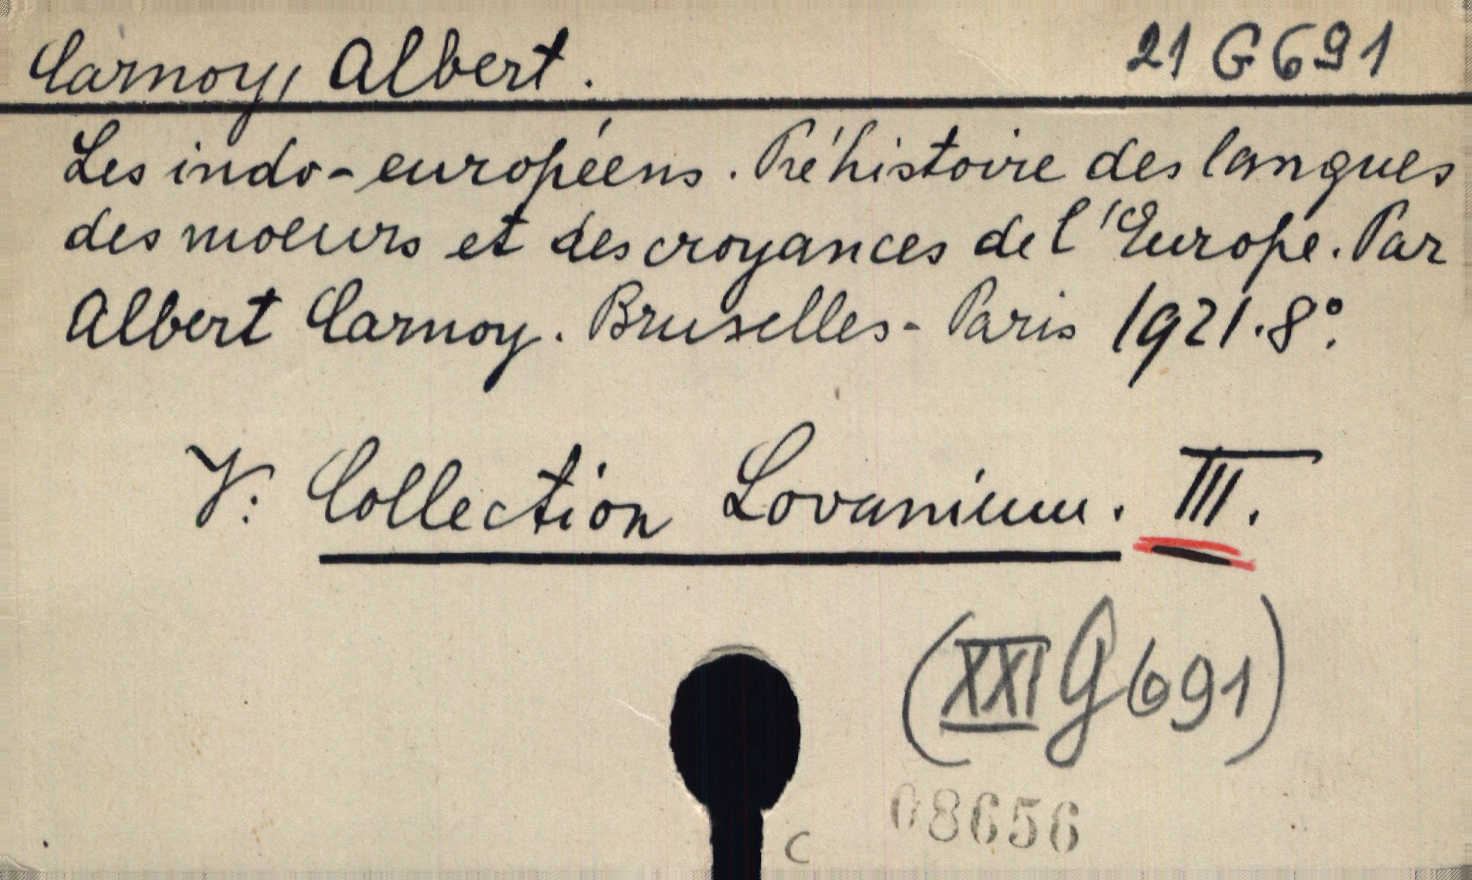 Carnoy, Albert.
21 G 691
Les indo-européens. Préhistoire des langues
des moeurs et des croyances de l'Europe. Par
Albert Carnoy. Bruxelles - Paris 1921. 8°.
V: Collection Lovanium. III.
(XXI G 691)
08656
C